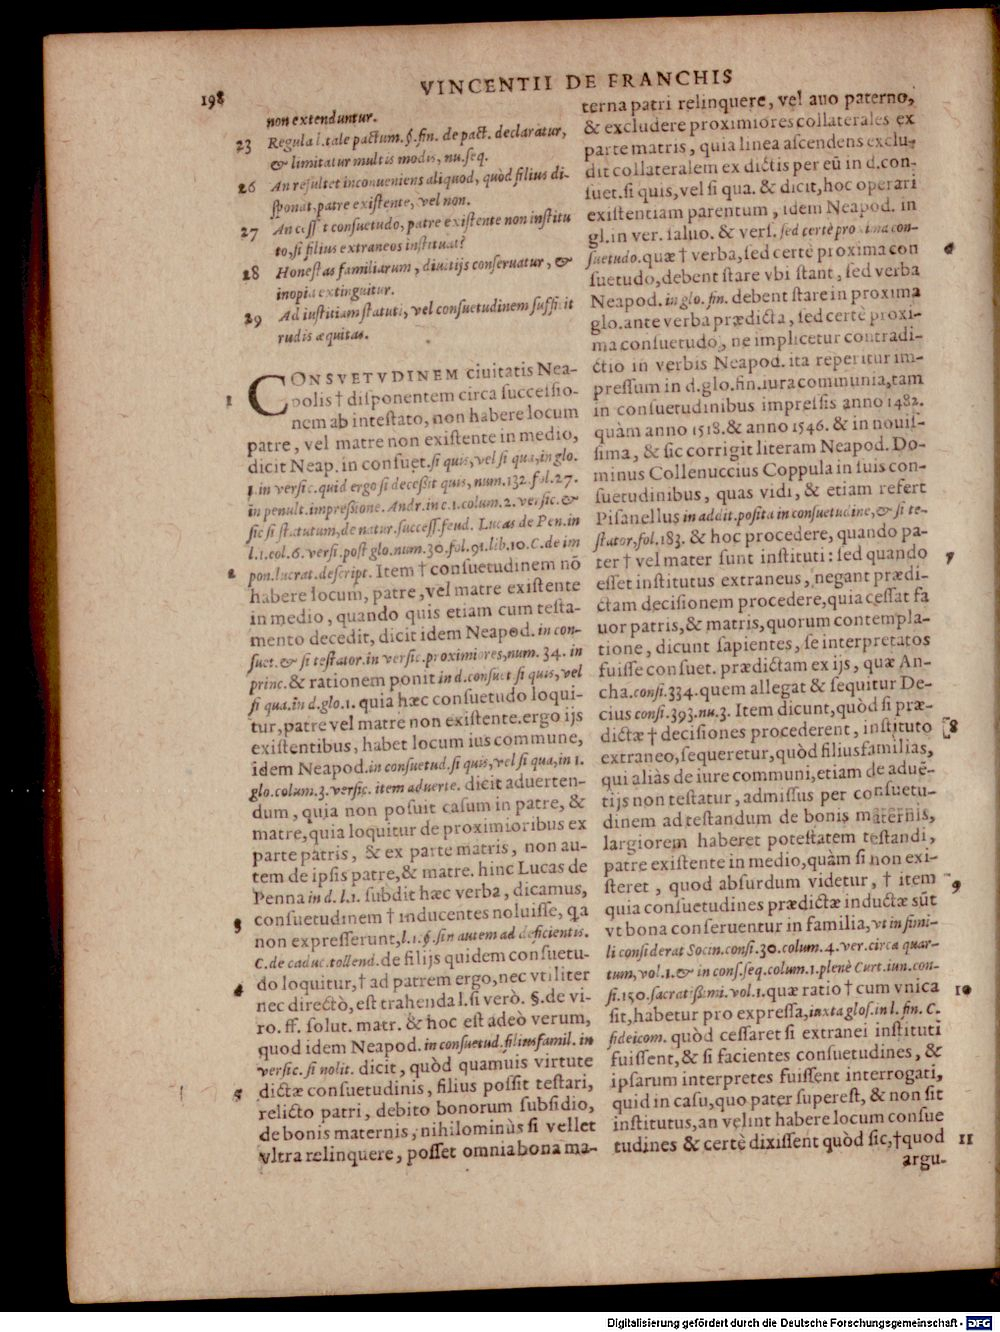 198
VINCENTII DE FRANCHIS
non extenduntur.
23 Regula l. tale pactum. §. fin. de pact. declaratur,
& limitatur multis modis, nu. seq.
26 An resultet inconueniens aliquod, quòd filius di-
sponat, patre existente, vel non.
27 An cesset consuetudo, patre existente non institu
to, si filius extraneos instituat?
28 Honestas familiarum, diuitijs conseruatur, &
inopia extinguitur.
29 Ad iustitiam statuti, vel consuetudinem sufficit
rudis æquitas.
1 CONSVETVDINEM ciuitatis Nea-
polis † disponentem circa successio-
nem ab intestato, non habere locum
patre, vel matre non existente in medio,
dicit Neap. in consuet. si quis, vel si qua, in glo.
1. in versic. quid ergo si decessit quis, num. 132. fol. 27.
in penult. impressione. Andr. in c. 1. colum. 2. versic. &
sic si statutum, de natur. success. feud. Lucas de Pen. in
l. 1. col. 6. versi. post glo. num. 30. fol. 91. lib. 10. C. de im
2 pon. lucrat. descript. Item † consuetudinem nõ
habere locum, patre, vel matre existente
in medio, quando quis etiam cum testa-
mento decedit, dicit idem Neapod. in con-
suet. & si testator. in versic. proximiores, num. 34. in
princ. & rationem ponit in d. consuet. si quis, vel
si qua. in d. glo. 1. quia hæc consuetudo loqui-
tur, patre vel matre non existente. ergo ijs
existentibus, habet locum ius commune,
idem Neapod. in consuetud. si quis, vel si qua, in 1.
glo. colum. 3. versic. item aduerte. dicit aduerten-
dum, quia non posuit casum in patre, &
matre, quia loquitur de proximioribus ex
parte patris, & ex parte matris, non au-
tem de ipsis patre, & matre. hinc Lucas de
Penna in d. l. 1. subdit hæc verba, dicamus,
3 consuetudinem † inducentes noluisse, qa
non expresserunt, l. 1. §. sin autem ad deficientis.
C. de caduc. tollend. de filijs quidem consuetu-
4 do loquitur, † ad patrem ergo, nec vtiliter
nec directò, est trahenda l. si verò. §. de vi-
ro. ff. solut. matr. & hoc est adeò verum,
quod idem Neapod. in consuetud. filiusfamil. in
versic. si nolit. dicit, quòd quamuis virtute
5 dictæ consuetudinis, filius possit testari,
relicto patri, debito bonorum subsidio,
de bonis maternis, nihilominùs si vellet
vltra relinquere, posset omnia bona ma-
terna patri relinquere, vel auo paterno,
& excludere proximiores collaterales ex
parte matris, quia linea ascendens exclu-
dit collateralem ex dictis per eũ in d. con-
suet. si quis, vel si qua. & dicit, hoc operari
existentiam parentum, idem Neapod. in
gl. in ver. saluo. & vers. sed certè proxima con-
6 suetudo. quæ † verba, sed certè proxima con
suetudo, debent stare vbi stant, sed verba
Neapod. in glo. fin. debent stare in proxima
glo. ante verba prædicta, sed certè proxi-
ma consuetudo, ne implicetur contradi-
ctio in verbis Neapod. ita reperitur im-
pressum in d. glo. fin. iura communia, tam
in consuetudinibus impressis anno 1482.
quàm anno 1518. & anno 1546. & in nouis-
sima, & sic corrigit literam Neapod. Do-
minus Collenuccius Coppula in suis con-
suetudinibus, quas vidi, & etiam refert
Pisanellus in addit. posita in consuetudine, & si te-
stator, fol. 183. & hoc procedere, quando pa-
7 ter † vel mater sunt instituti: sed quando
esset institutus extraneus, negant prædi-
ctam decisionem procedere, quia cessat fa
uor patris, & matris, quorum contempla-
tione, dicunt sapientes, se interpretatos
fuisse consuet. prædictam ex ijs, quæ An-
cha. consi. 334. quem allegat & sequitur De-
cius consi. 393. nu. 3. Item dicunt, quòd si præ-
8 dictæ † decisiones procederent, instituto
extraneo, sequeretur, quòd filiusfamilias,
qui aliàs de iure communi, etiam de aduẽ-
tijs non testatur, admissus per consuetu-
dinem ad testandum de bonis maternis,
largiorem haberet potestatem testandi,
patre existente in medio, quàm si non exi-
9 steret, quod absurdum videtur, † item
quia consuetudines prædictæ inductæ sũt
vt bona conseruentur in familia, vt in simi-
li considerat Socin. consi. 30. colum. 4. ver. circa quar-
tum, vol. 1. & in cons. seq. colum. 1. plenè Curt. iun. con-
10 si. 150. sacratissimi. vol. 1. quæ ratio † cum vnica
sit, habetur pro expressa, iuxta glos. in l. fin. C.
fideicom. quòd cessaret si extranei instituti
fuissent, & si facientes consuetudines, &
ipsarum interpretes fuissent interrogati,
quid in casu, quo pater superest, & non sit
institutus, an velint habere locum consue
11 tudines & certè dixissent quòd sic, † quod
argu-
Digitalisierung gefördert durch die Deutsche Forschungsgemeinschaft - DFG